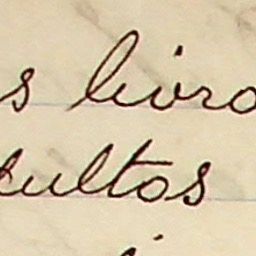 s livro
cultos